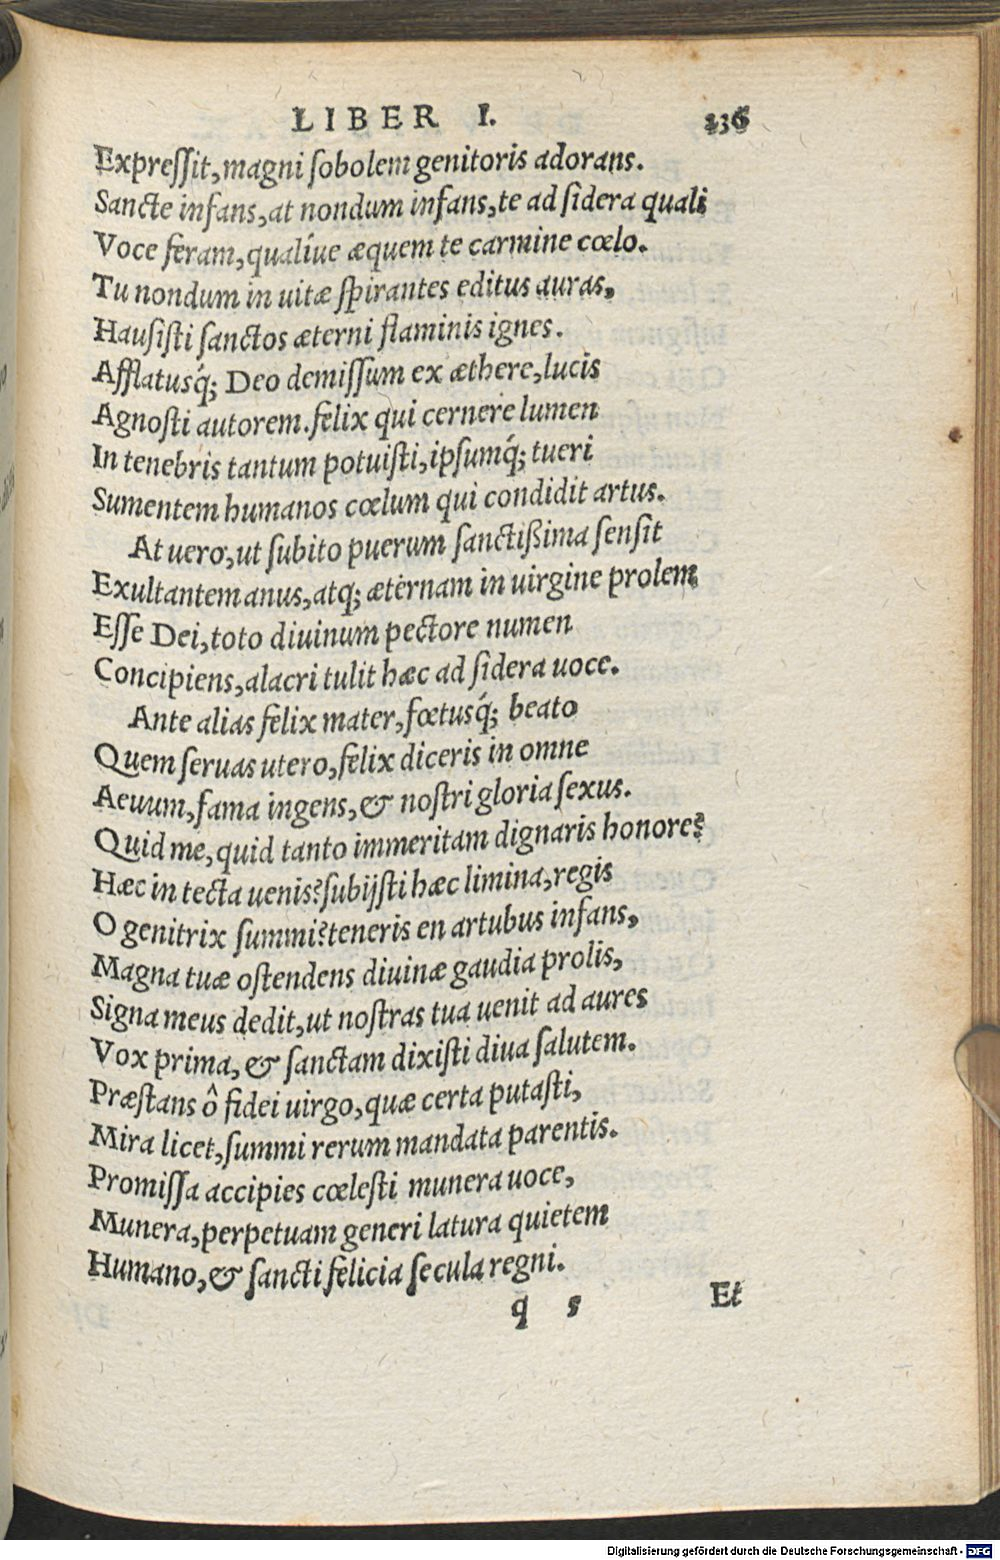 LIBER I. 236
Expreſſit, magni ſobolem genitoris adorans.
Sancte infans, at nondum infans, te ad ſidera quali
Voce feram, qualíue æquem te carmine cœlo.
Tu nondum in uitæ ſpirantes editus auras,
Hauſiſti ſanctos æterni flaminis ignes.
Afflatusq́; Deo demiſſum ex æthere, lucis
Agnoſti autorem. felix qui cernere lumen
In tenebris tantum potuiſti, ipſumq́; tueri
Sumentem humanos cœlum qui condidit artus.
At uero, ut ſubito puerum ſanctißima ſenſit
Exultantem anus, atq; æternam in uirgine prolem
Eſſe Dei, toto diuinum pectore numen
Concipiens, alacri tulit hæc ad ſidera uoce.
Ante alias felix mater, fœtusq́; beato
Quem ſeruas utero, felix diceris in omne
Aeuum, fama ingens, & noſtri gloria ſexus.
Quid me, quid tanto immeritam dignaris honore?
Hæc in tecta uenis? ſubijſti hæc limina, regis
O genitrix ſummi? teneris en artubus infans,
Magna tuæ oſtendens diuinæ gaudia prolis,
Signa meus dedit, ut noſtras tua uenit ad aures
Vox prima, & ſanctam dixiſti diua ſalutem.
Præſtans ô fidei uirgo, quæ certa putaſti,
Mira licet, ſummi rerum mandata parentis.
Promiſſa accipies cœleſti munera uoce,
Munera, perpetuam generi latura quietem
Humano, & ſancti felicia ſecula regni.
q s Et
Digitalisierung gefördert durch die Deutsche Forschungsgemeinschaft - DFG